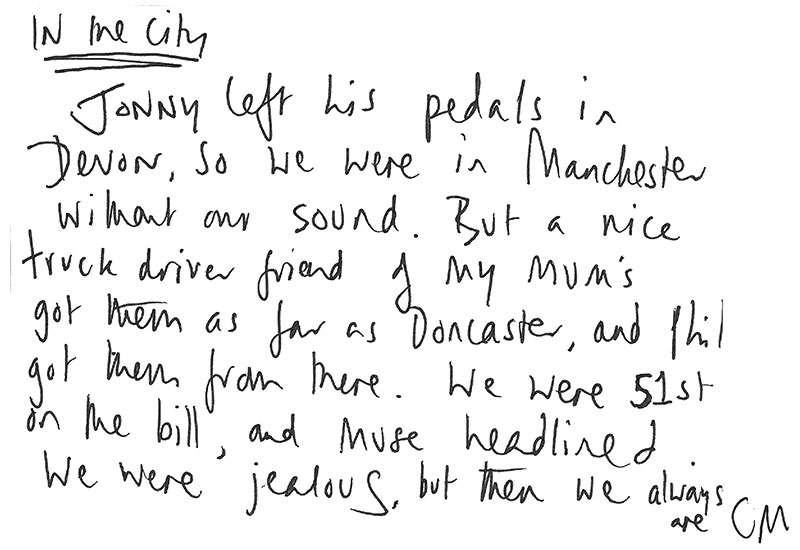 IN the City
JONNY left his pedals in
DEVON, so we were in Manchester
without our sound. But a nice
truck driver friend of my mum's
got them as far as Doncaster, and Phil
got them from there. We were 51st
on the bill, and Muse headlined
We were jealous, but then we always
are CM